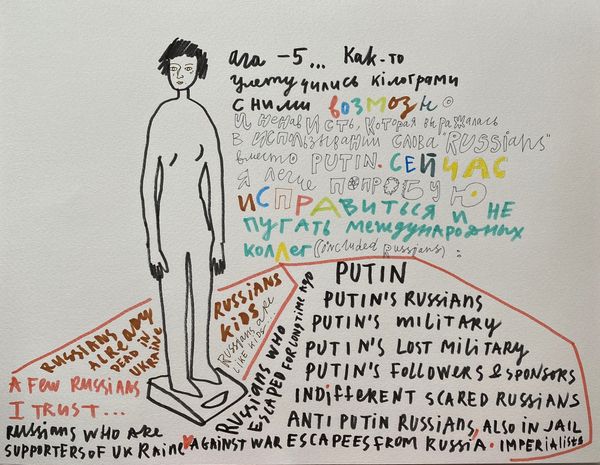 ага -5... Как-то
улетучились кілограми
с ними возможно
и ненависть, которая выражалась
в использовании слова "RUSSIANS"
вместо PUTIN. СЕЙЧАС
Я легче попробую
исправиться и не
пугать международных
коллег (included Russians):
RUSSIANS
ALREADY
DEAD IN
UKRAINE
RUSSIANS
KIDS
RUSSIANS ARE
LIKE KIDS...
A FEW RUSSIANS
I TRUST...
RUSSIANS WHO ARE
SUPPORTERS OF UKRAINE
RUSSIANS WHO
ESCAPED FOR LONG TIME AGO
PUTIN
PUTIN'S RUSSIANS
PUTIN'S MILITARY
PUTIN'S LOST MILITARY
PUTIN'S FOLLOWERS & SPONSORS
INDIFFERENT SCARED RUSSIANS
ANTI PUTIN RUSSIANS, ALSO IN JAIL
AGAINST WAR ESCAPEES FROM RUSSIA. IMPERIALISTS